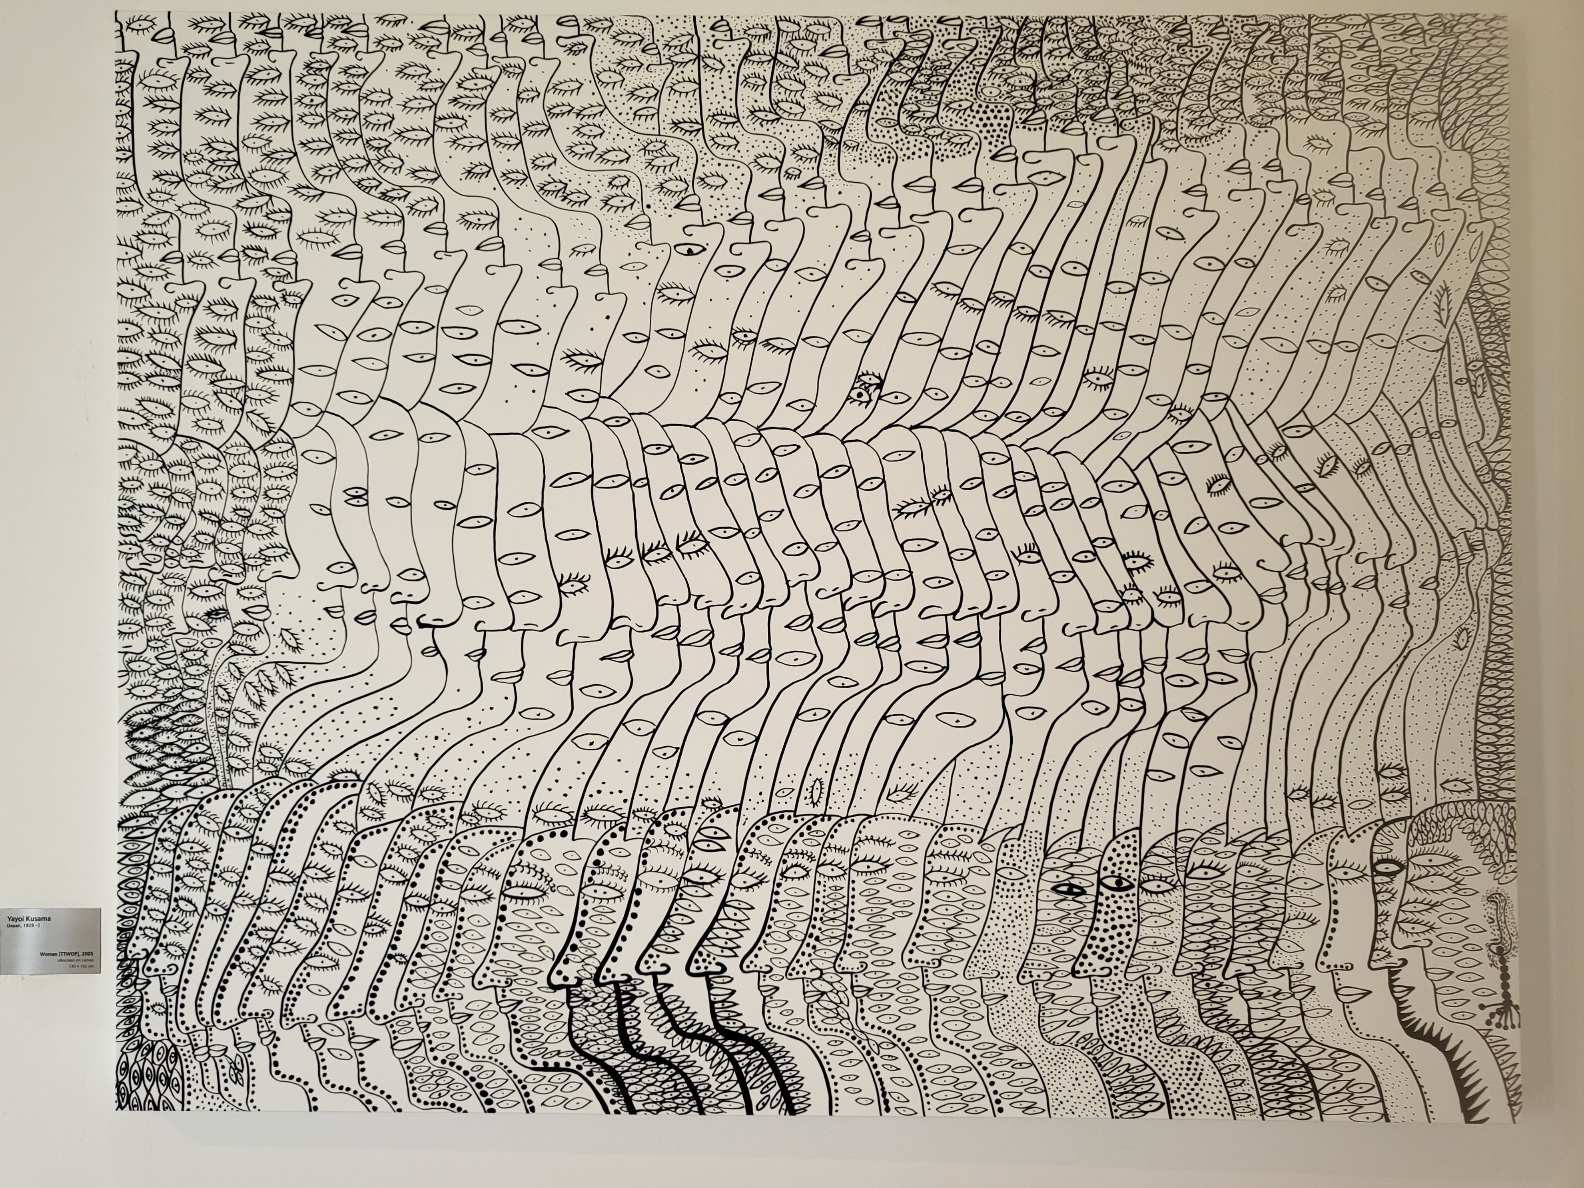 Yayoi Kusama
(Japan, 1929 -)
Women [TTWOP], 2005
silkscreen on canvas
130 x 162 cm